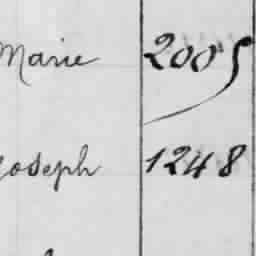 Marie 2005
Joseph 1248